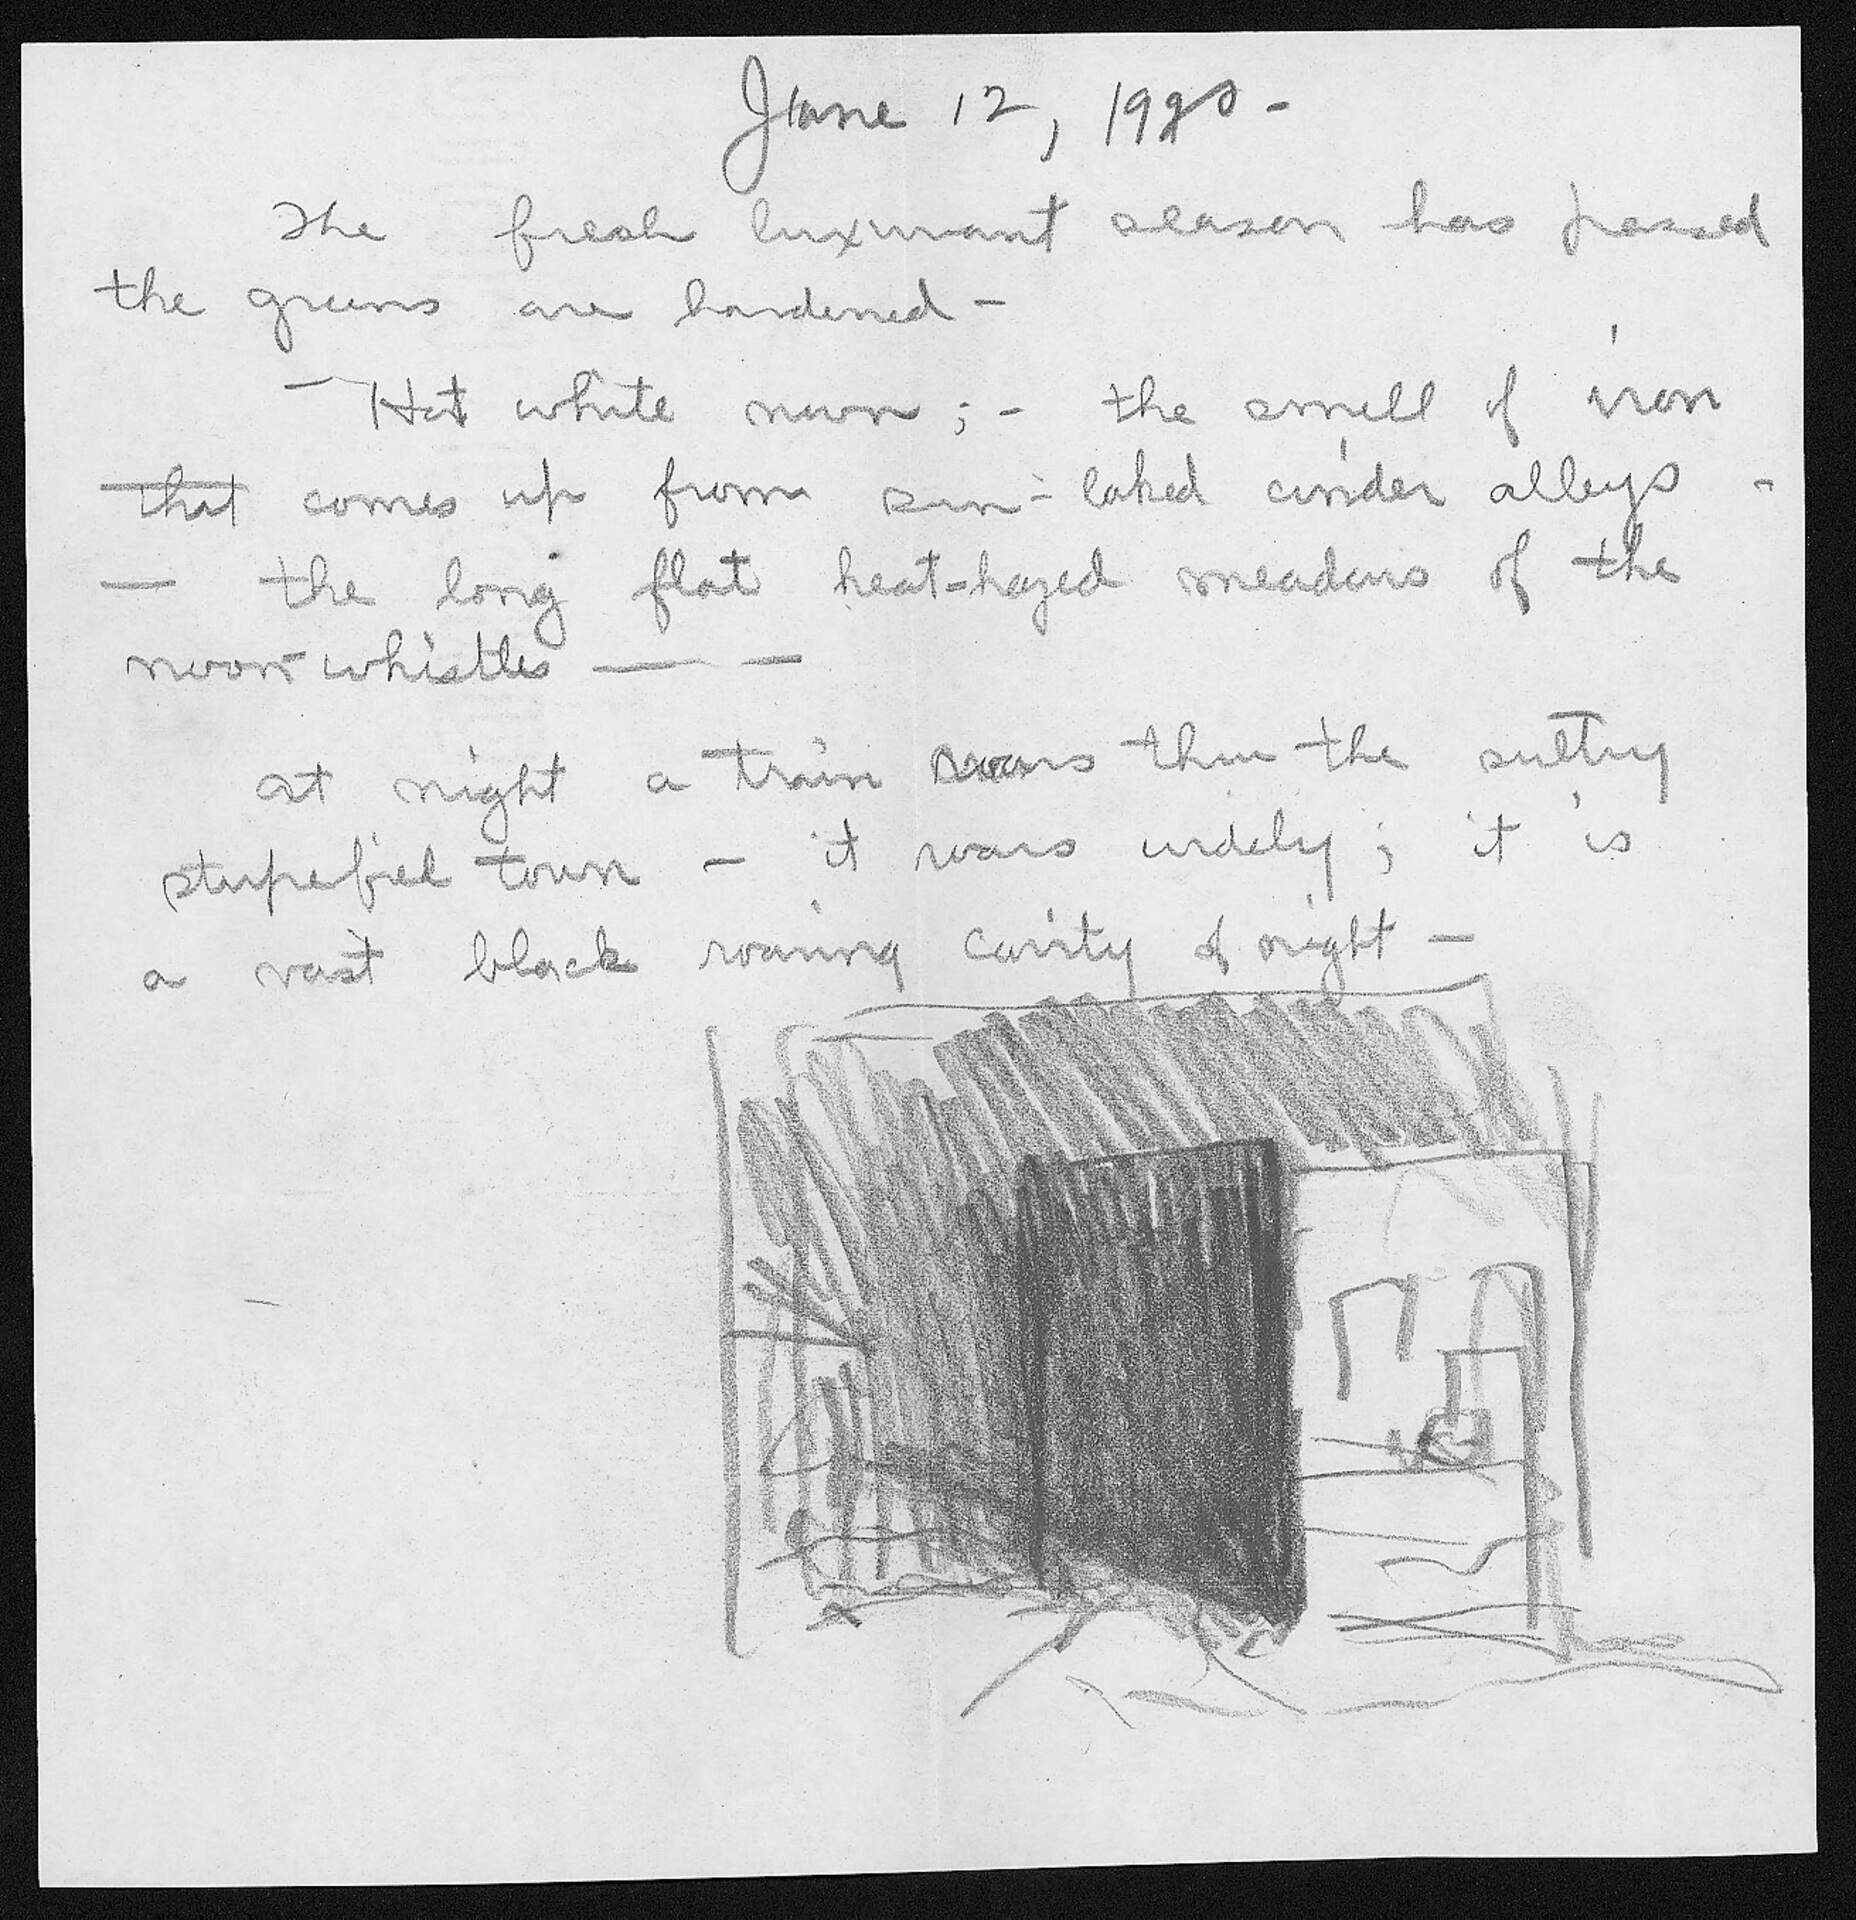 June 12, 19
The fresh luxuriant season has passed
the greens are hardened –
– Hot white noon ; – the smell of iron
that comes up from sun-baked cinder alleys –
— the long flat heat-hazed meadows of the
noon whistles — –
at night a train roars thru the sultry
stupefied town – it roars widely ; it is
a vast black roaring cavity of night –